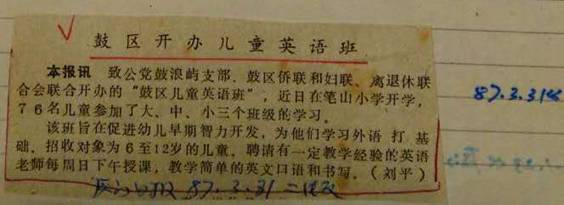 鼓区开办儿童英语班
本报讯 致公党鼓浪屿支部、鼓区侨联和妇联、离退休联
合会联合开办的“鼓区儿童英语班”，近日在笔山小学开学，
76名儿童参加了大、中、小三个班级的学习。
该班旨在促进幼儿早期智力开发，为他们学习外语打基
础，招收对象为6至12岁的儿童，聘请有一定教学经验的英语
老师每周日下午授课，教学简单的英文口语和书写。（刘平）
厦门日报 87.3.31 二版
87.3.31